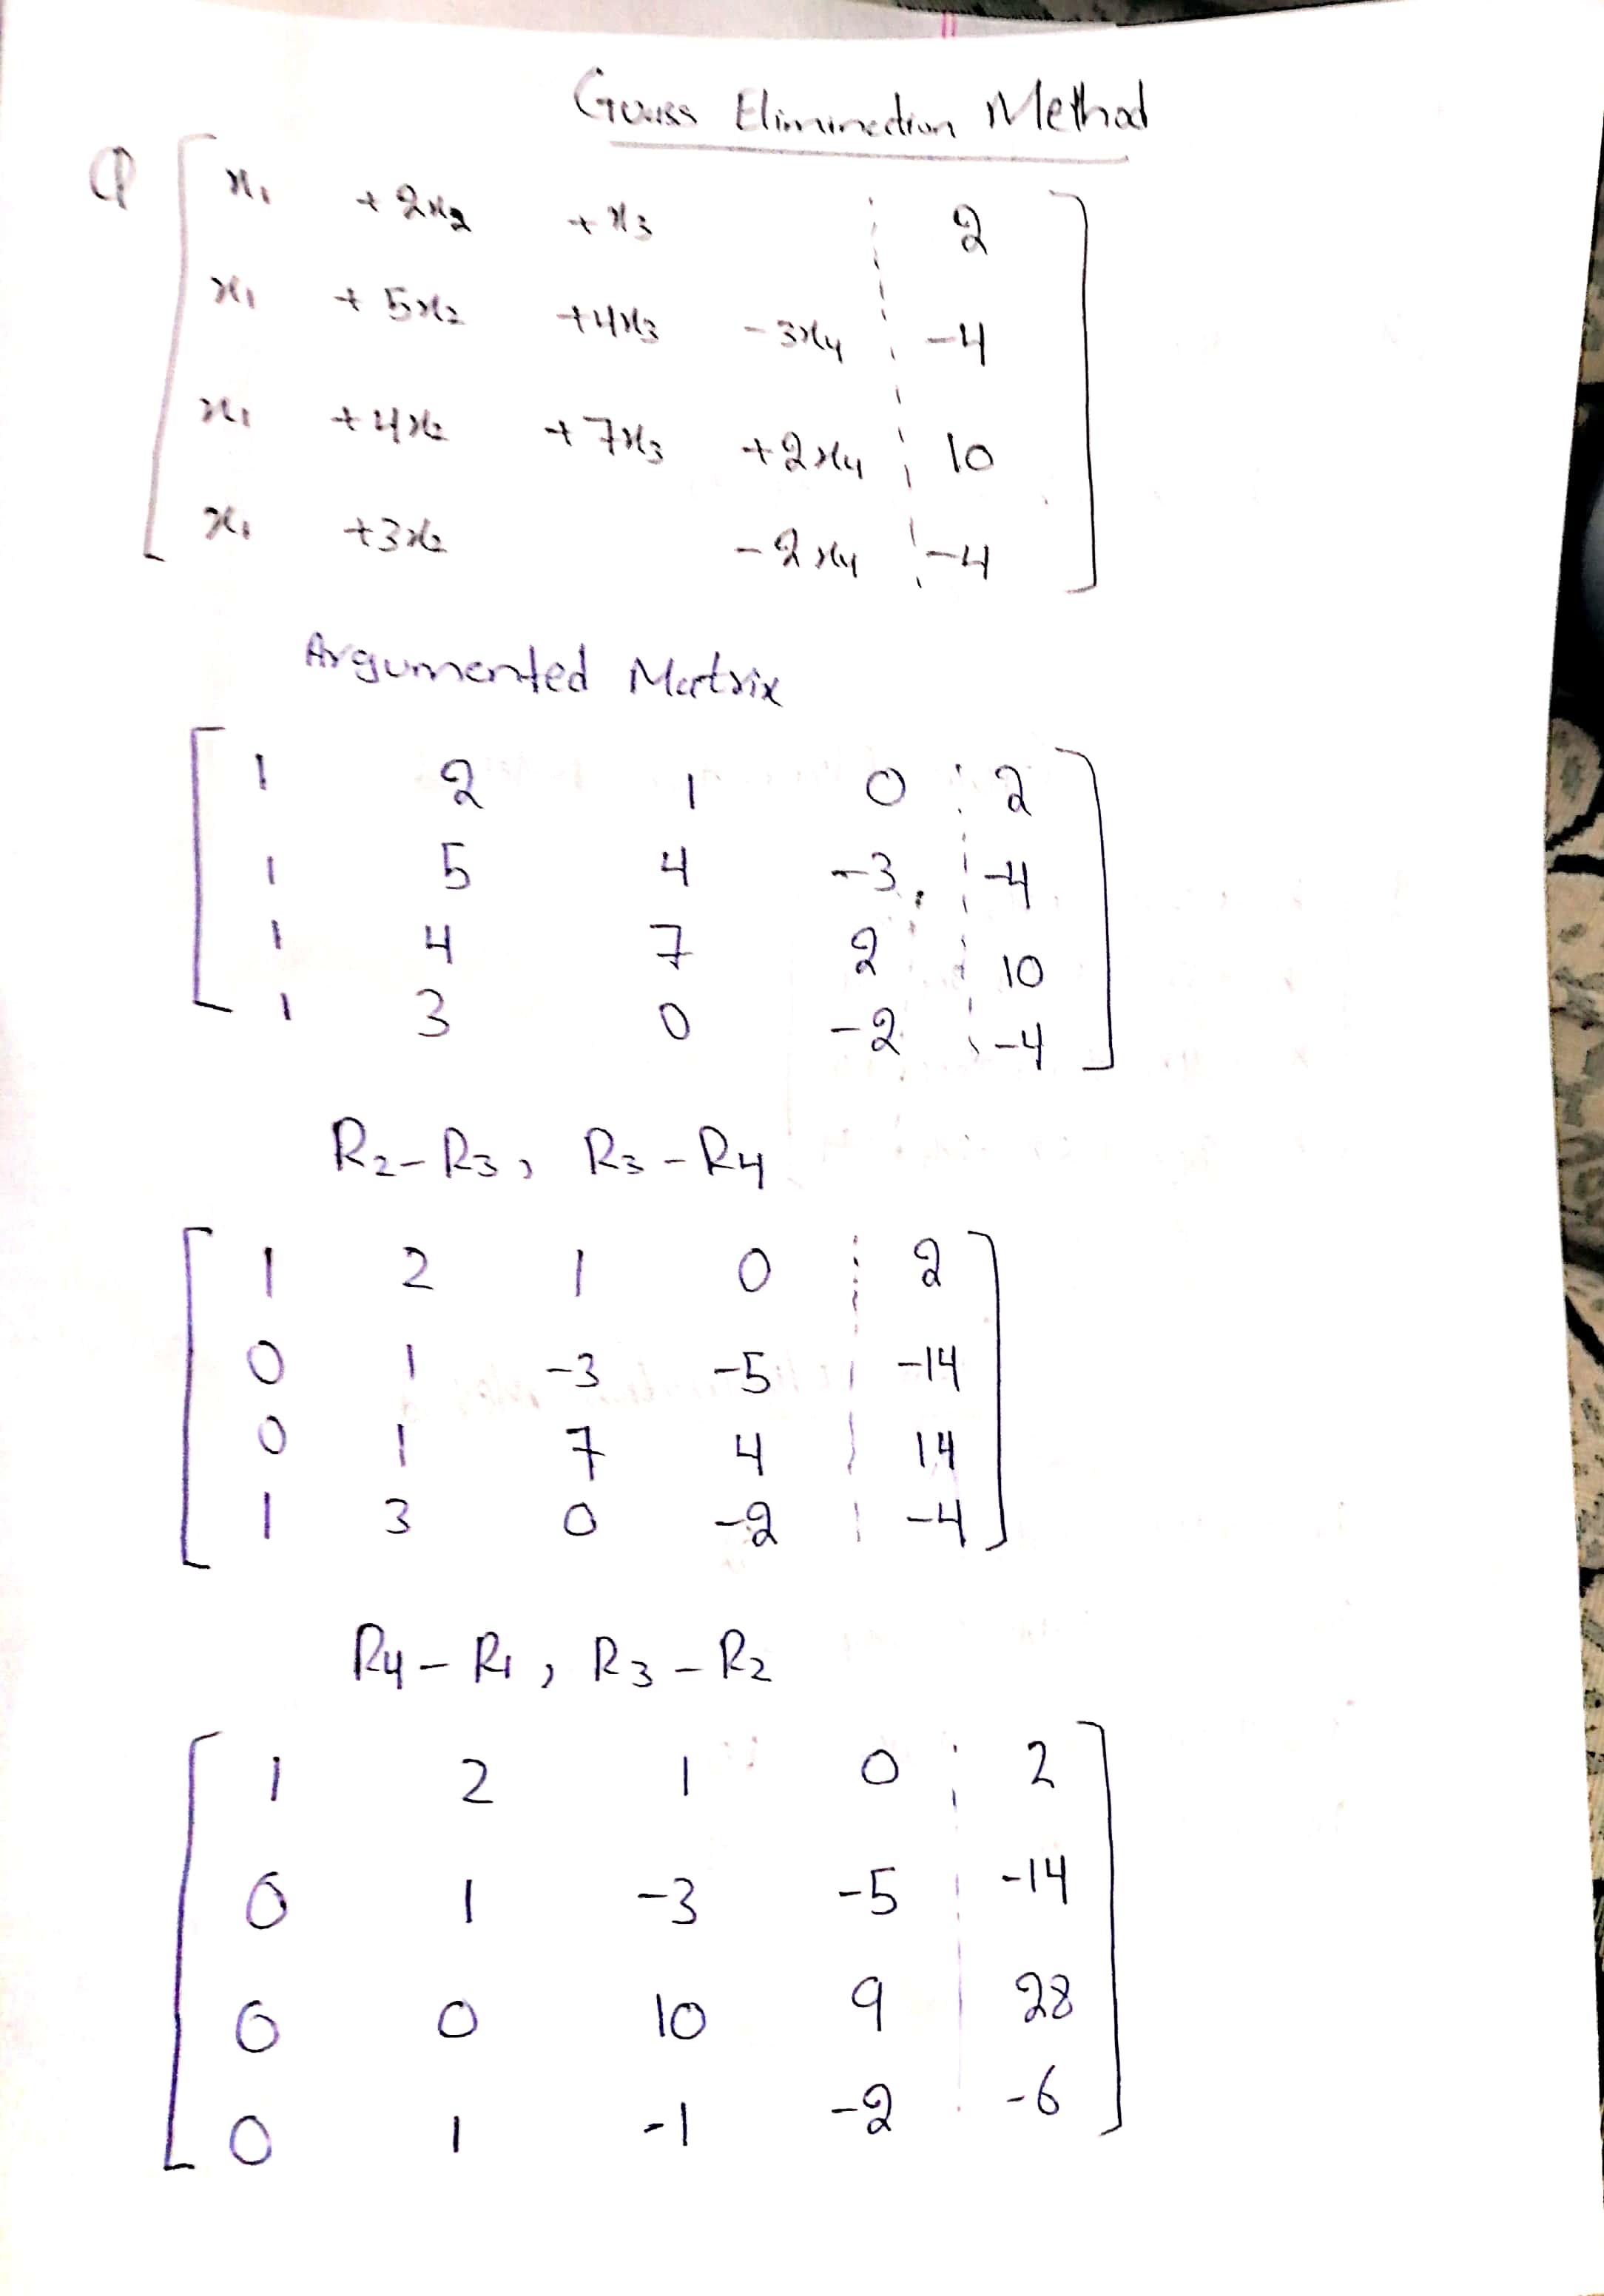 Gauss Elimination Method
Q x₁ + 2x₂ + x₃ 2
x₁ + 5x₂ +4x₃ - 3x₄ -4
x₁ + 4x₂ + 7x₃ + 2x₄ 10
x₁ +3x₂ - 2x₄ -4
Argumented Matrix
1 2 1 0 2
1 5 4 -3 -4
1 4 7 2 10
1 3 0 -2 -4
R₂ - R₃, R₃ - R₄
1 2 1 0 2
0 1 -3 -5 -14
0 1 7 4 14
1 3 0 -2 -4
R₄ - R₁, R₃ - R₂
1 2 1 0 2
0 1 -3 -5 -14
0 0 10 9 28
0 1 -1 -2 -6